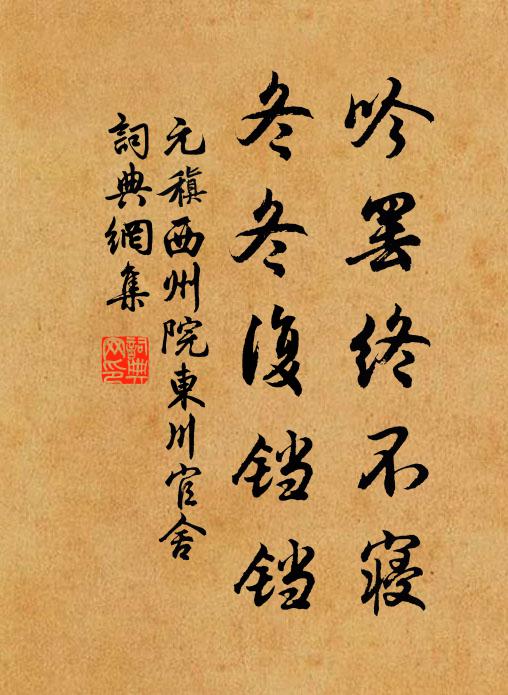 吟罢终不寝
冬冬复铛铛
元稹西州院東川官舍
詞典網集
詞典网印